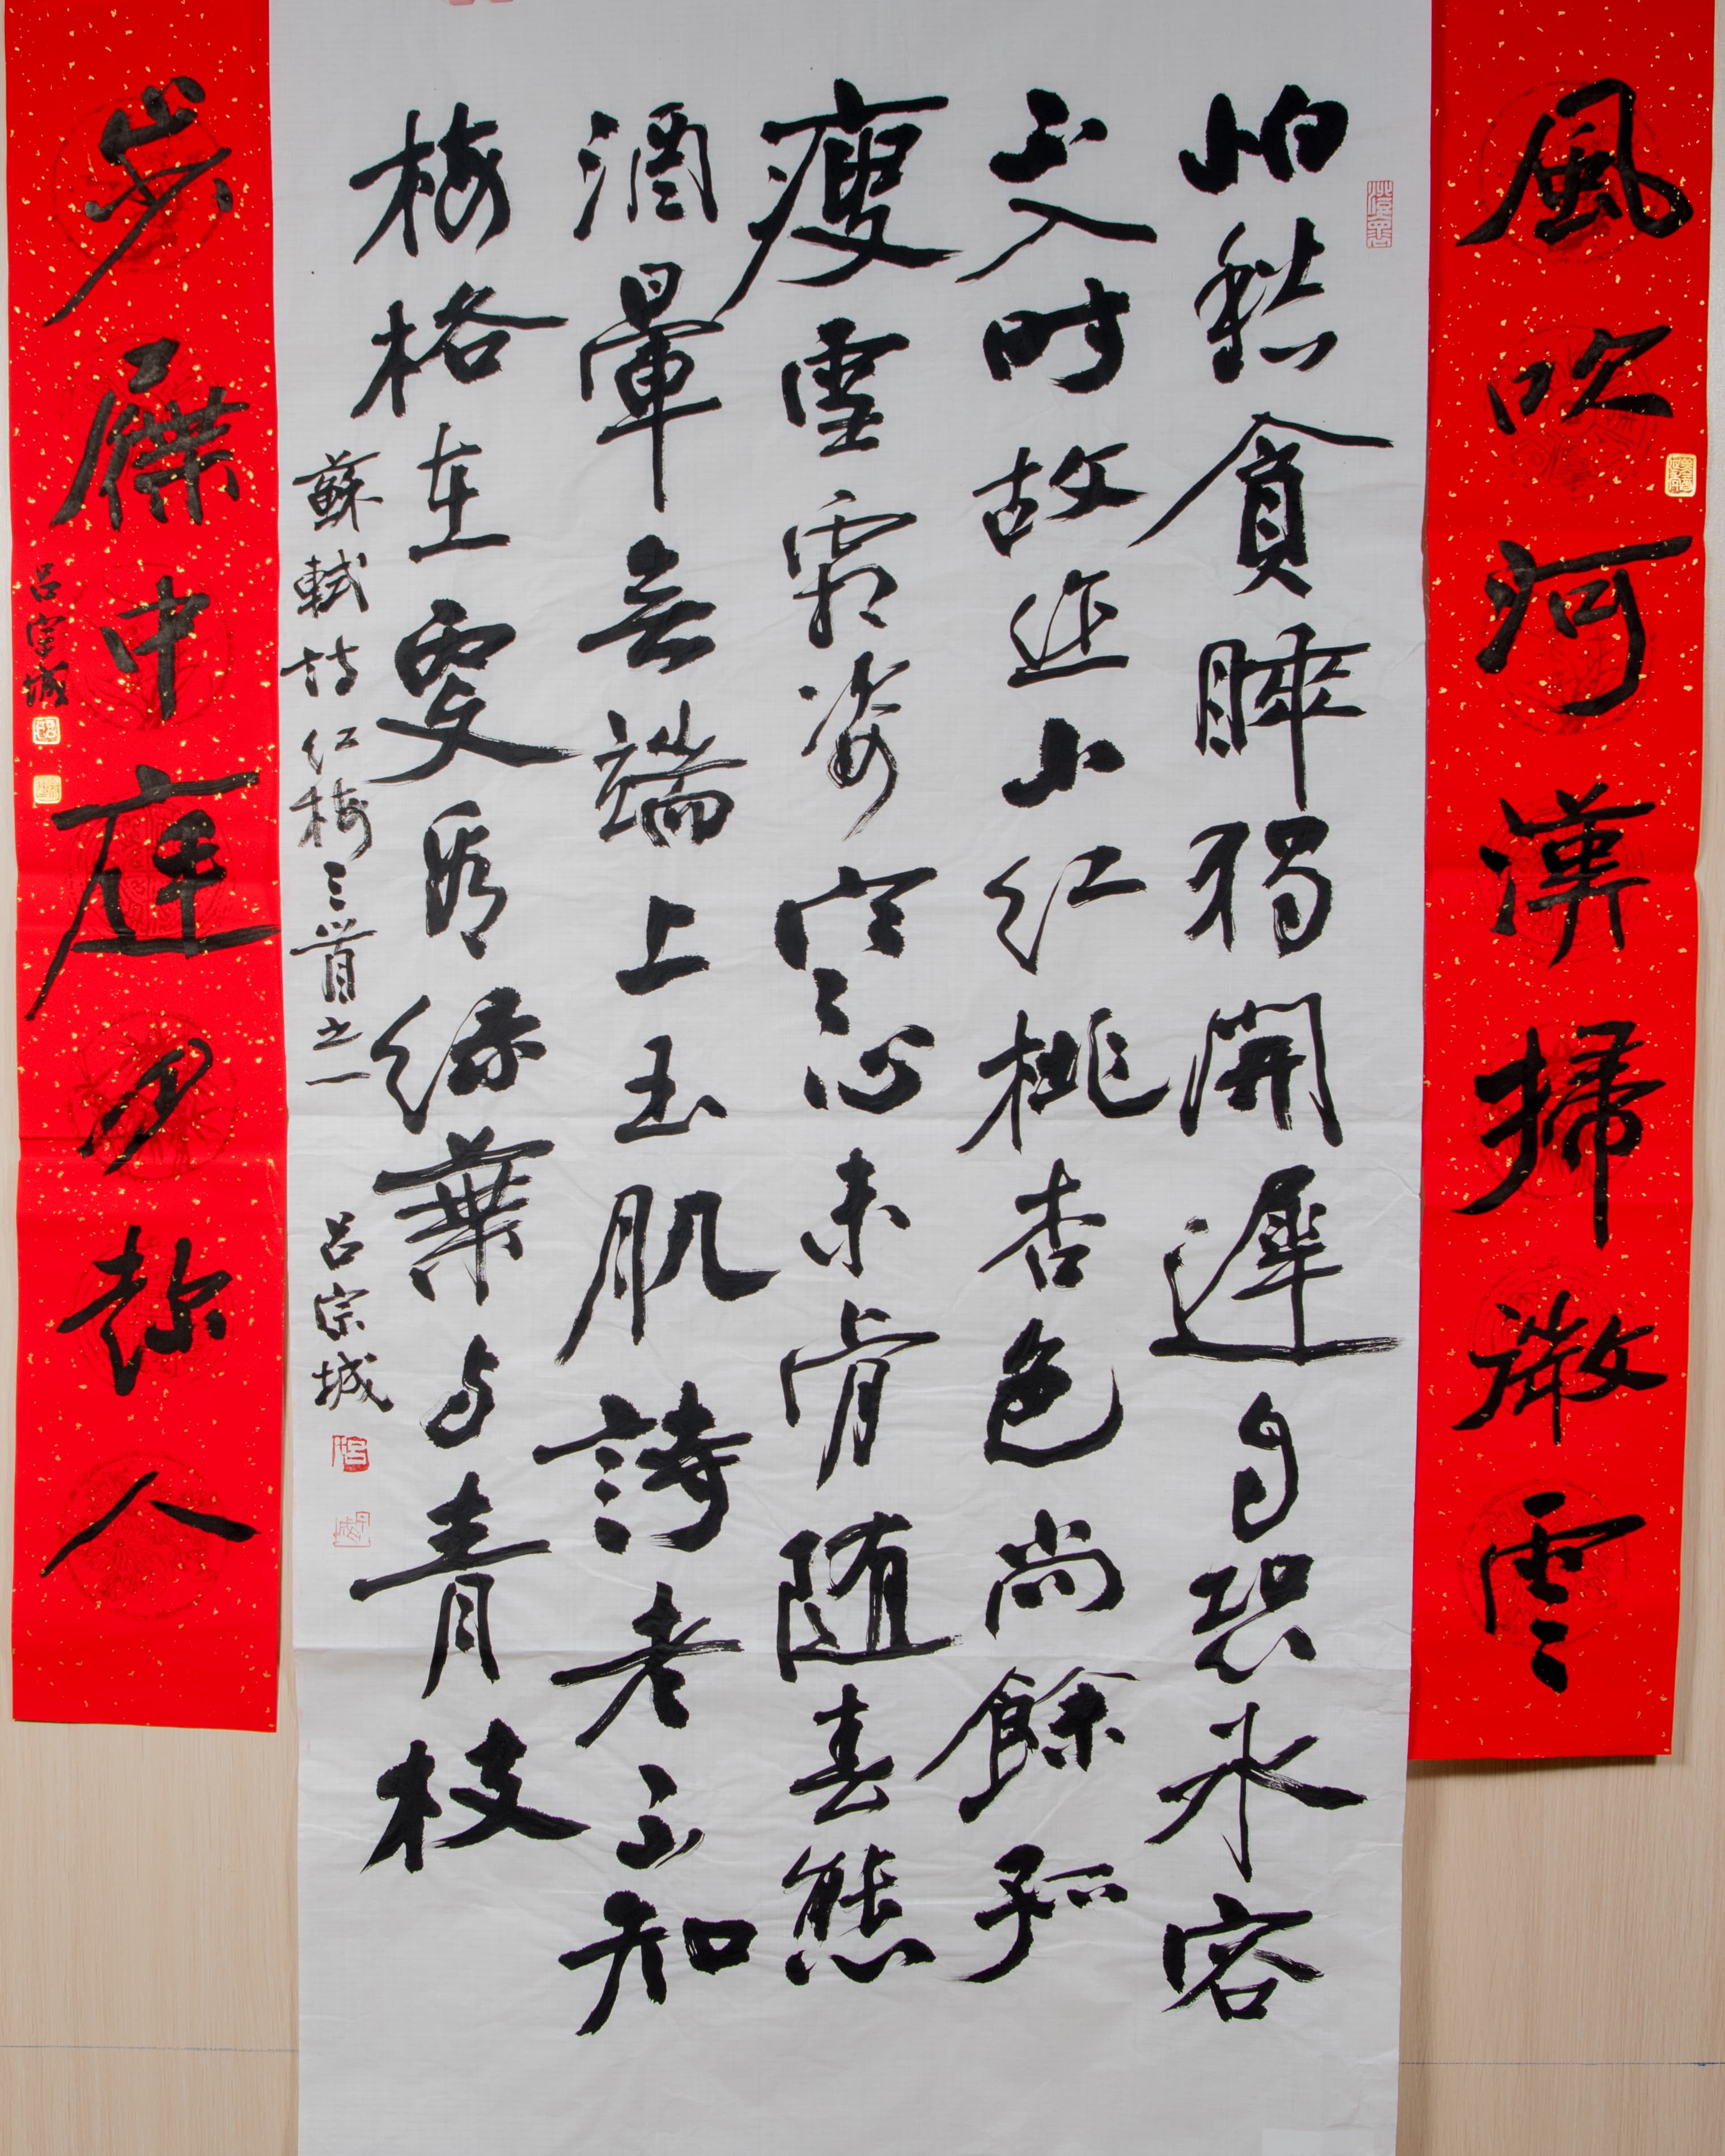 風吹河漢掃微雲
怕愁貪睡獨開遲自恐冰容
不入時故作小紅桃杏色尚餘孤
瘦雪霜姿寒心未肯随春態
酒暈無端上玉肌詩老不知
梅格在更看綠葉与青枝
蘇軾詩紅梅三首之一 呂宗城
步屧中庭月趁人
呂宗城